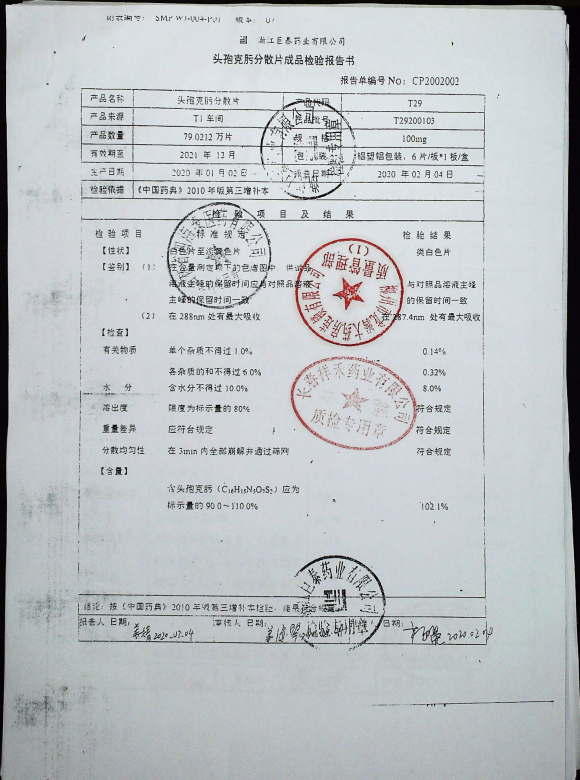 浙江巨泰药业有限公司
头孢克肟分散片成品检验报告书
报告单编号 No: CP2002002
产品名称 头孢克肟分散片 产品代码 T29
产品来源 T1 车间 T29200103
产品数量 79.0212 万片 规格 100mg
有效期至 2021 年 12 月 包装 铝塑铝包装，6 片/板*1 板/盒
生产日期 2020 年 01 月 02 日 报告日期 2020 年 02 月 04 日
检验依据 《中国药典》2010 年版第三增补本
检验项目及结果
检验项目 标准规定 检验结果
【性状】 类白色片
【鉴别】 (1) 含量测定项下的色谱图中，供试品
溶液主峰的保留时间应与对照品溶液 与对照品溶液主峰
主峰的保留时间一致 的保留时间一致
(2) 在 288nm 处有最大吸收 在 287.4nm 处有最大吸收
【检查】
有关物质 单个杂质不得过 1.0% 0.14%
各杂质的和不得过 6.0% 0.32%
水 分 含水分不得过 10.0% 8.0%
溶出度 限度为标示量的 80% 符合规定
重量差异 应符合规定 符合规定
分散均匀性 在 3min 内全部崩解并通过筛网 符合规定
【含量】
含头孢克肟（C₁₆H₁₅N₅O₇S₂）应为
标示量的 90.0～110.0% 102.1%
结论：按《中国药典》2010 年版第三增补本检验，结果符合规定
报告人 日期: 2020.02.04 审核人 日期: 日期: 2020.02.04
质量管理部
(1)
长春祥禾药业有限公司
质检专用章
巨泰药业有限公司